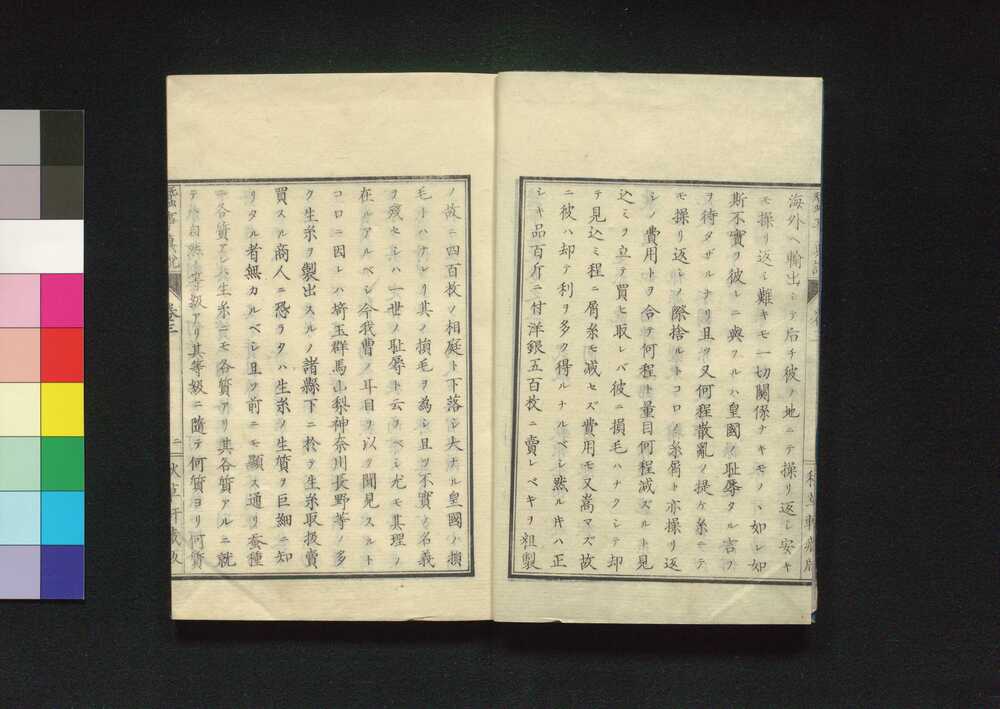 海外ヘ輸出シテ后チ彼ノ地ニテ操リ返シ安キ
モ操リ返シ難キモ一切關係ナキモノヽ如レ如
斯不實ヲ彼レニ與フルハ皇國ノ耻辱タル言フ
ヲ待タザルナリ且ツ又何程散亂ノ提ケ糸ニテ
モ操リ返シノ際捨ルトコロノ糸屑ト亦操リ返
シノ費用トヲ合テ何程ト量目何程減ズルト見
込ミヲ立テ買ヒ取レバ彼ニ損毛ハナクシテ却
テ見込ミ程ニ屑糸モ減セズ費用モ又嵩マズ故
ニ彼ハ却テ利ヲ多ク得ルナルベシ然ル𪜈ハ正
シキ品百斤ニ付洋銀五百枚ニ賣レベキヲ粗製
ノ故ニ四百枚ノ相庭ト下落シ大ナル皇國ノ損
毛トハナレリ其ノ損毛ヲ為シ且ツ不實ノ名義
ヲ殘セシハ一世ノ耻辱ト云フベシ尤モ其理ノ
在ルアルベシ今我曹ノ耳目ヲ以テ聞見スルト
コロニ因レハ埼玉群馬山梨神奈川長野等ノ多
ク生糸ヲ製出スルノ諸縣下ニ於テ生糸取扱賣
買スル商人ニ恐ラクハ生糸ノ生質ヲ巨細ニ知
リタル者無カルベシ且ツ前ニモ顯ス通リ蚕種
ニ各質アレハ生糸ニモ各質アリ其各質アルニ就
テハ自然ト等級アリ其等級ニ隨テ何質ヨリ何質
卷三
二